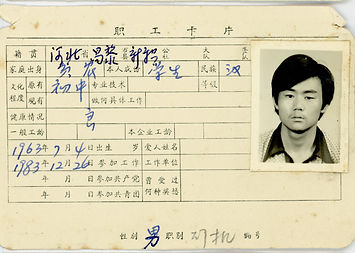 职工卡片
籍贯 河北省昌黎县 公社 大队 生队
家庭出身 贫农 本人成份 学生 民族 汉
文化程度 原有 初中 专业技术 等级
现有 做何具体工作
健康情况 良
一般工龄 本企业工龄
1963年7月4日出生 岁 爱人姓名
1983年12月26日参加工作 工作单位
年 月 日参加共产党 曾受过何种奖惩
年 月 日参加共青团
性别 男 职别 司机 编号